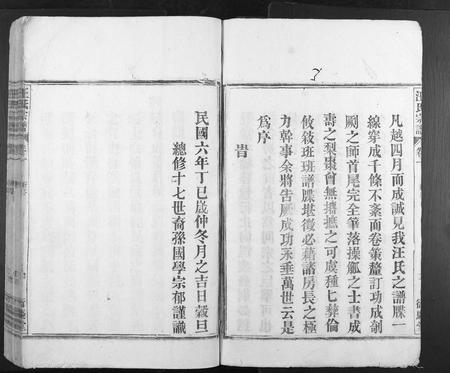 汪氏宗譜 卷一
凡越四月而成誠見我汪氏之譜牒一
線穿成千條不紊而卷策釐訂功成剞
劂之師首尾完全筆落操觚之士書成
壽之梨棗曾無攙攙之可虞種匕葬倫
攸敘班班譜牒堪徵必藉諸房長之極
力幹事余將告厥成功永垂萬世云是
為序
旹
民國六年丁巳歲仲冬月之吉日穀旦
總修十七世裔孫國學宗郁謹識
汪氏宗譜